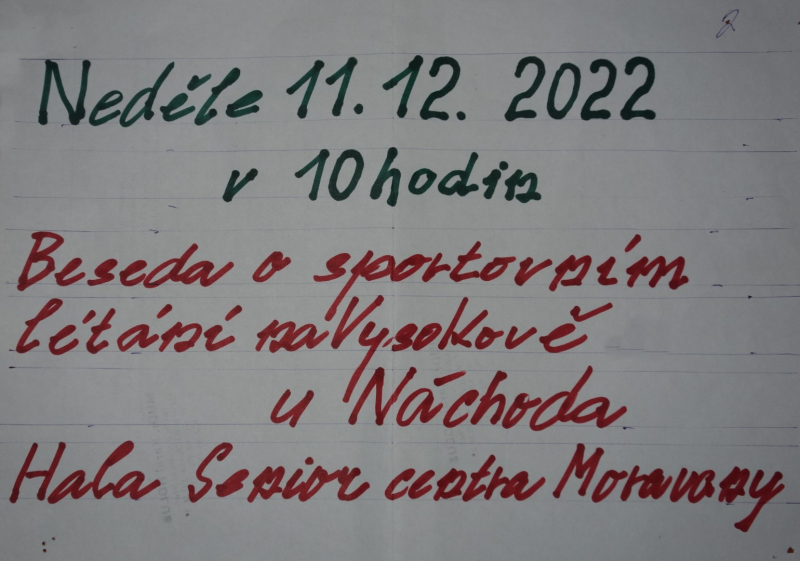 Neděle 11. 12. 2022
v 10 hodin
Beseda o sportovním
létání na Vysokově
u Náchoda
Hala Senior centra Moravany